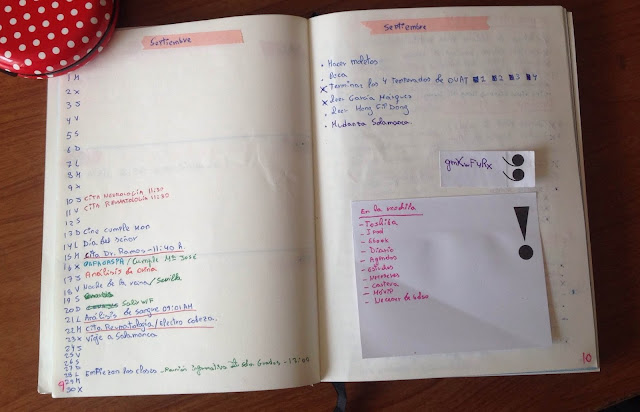 Septiembre
1 M
2 X
3 J
4 V
5 S
6 D
7 L
8 M
9 X
10 J CITA NEUROLOGÍA 11:30
11 V CITA REUMATOLOGÍA 11:30
12 S
13 D Cine cumple
14 L Día del señor
15 M Cita Dr. Ramos - 11:40 h.
16 X / Cumple Mª José
17 J Análisis de orina
18 V Noche de la reina / Sevilla
19 S
20 D Solo WF
21 L Análisis de sangre 09:01 AM
22 M Cita Reumatología / Electro cabeza.
23 X Viaje a Salamanca
24 J
25 V
26 S
27 D
28 L Empiezan las clases - 12:00
29 M
30 X
9
Septiembre
• Hacer maletas
• Beca
x Terminar las 4 temporadas de OUAT 1 2 3 4
x Leer García Márquez
• Leer Hong Gil Dong
• Mudanza Salamanca.
En la mochila
- Toshiba
- Ipod
- Ebook
- Diario
- Agendas
- Cartera
- Móvil
- Neceser de bolso
!
10